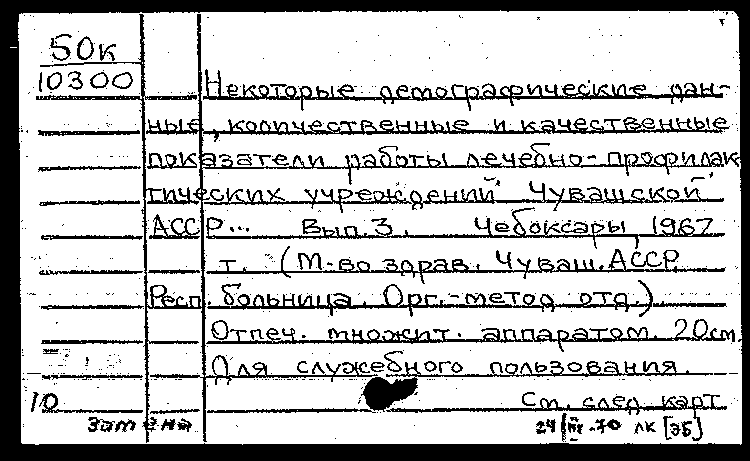 50к
10300
Некоторые демографические дан-
ные, количественные и качественные
показатели работы лечебно-профилак
тических учреждений Чувашской
АССР... Вып. 3. Чебоксары, 1967
т. (М-во здрав. Чуваш. АССР.
Респ. больница. Орг.-метод отд.).
Отпеч. множит. аппаратом. 20см
Для служебного пользования.
10 См. след карт
Замена 24/III-70 ЛК [ЭБ]